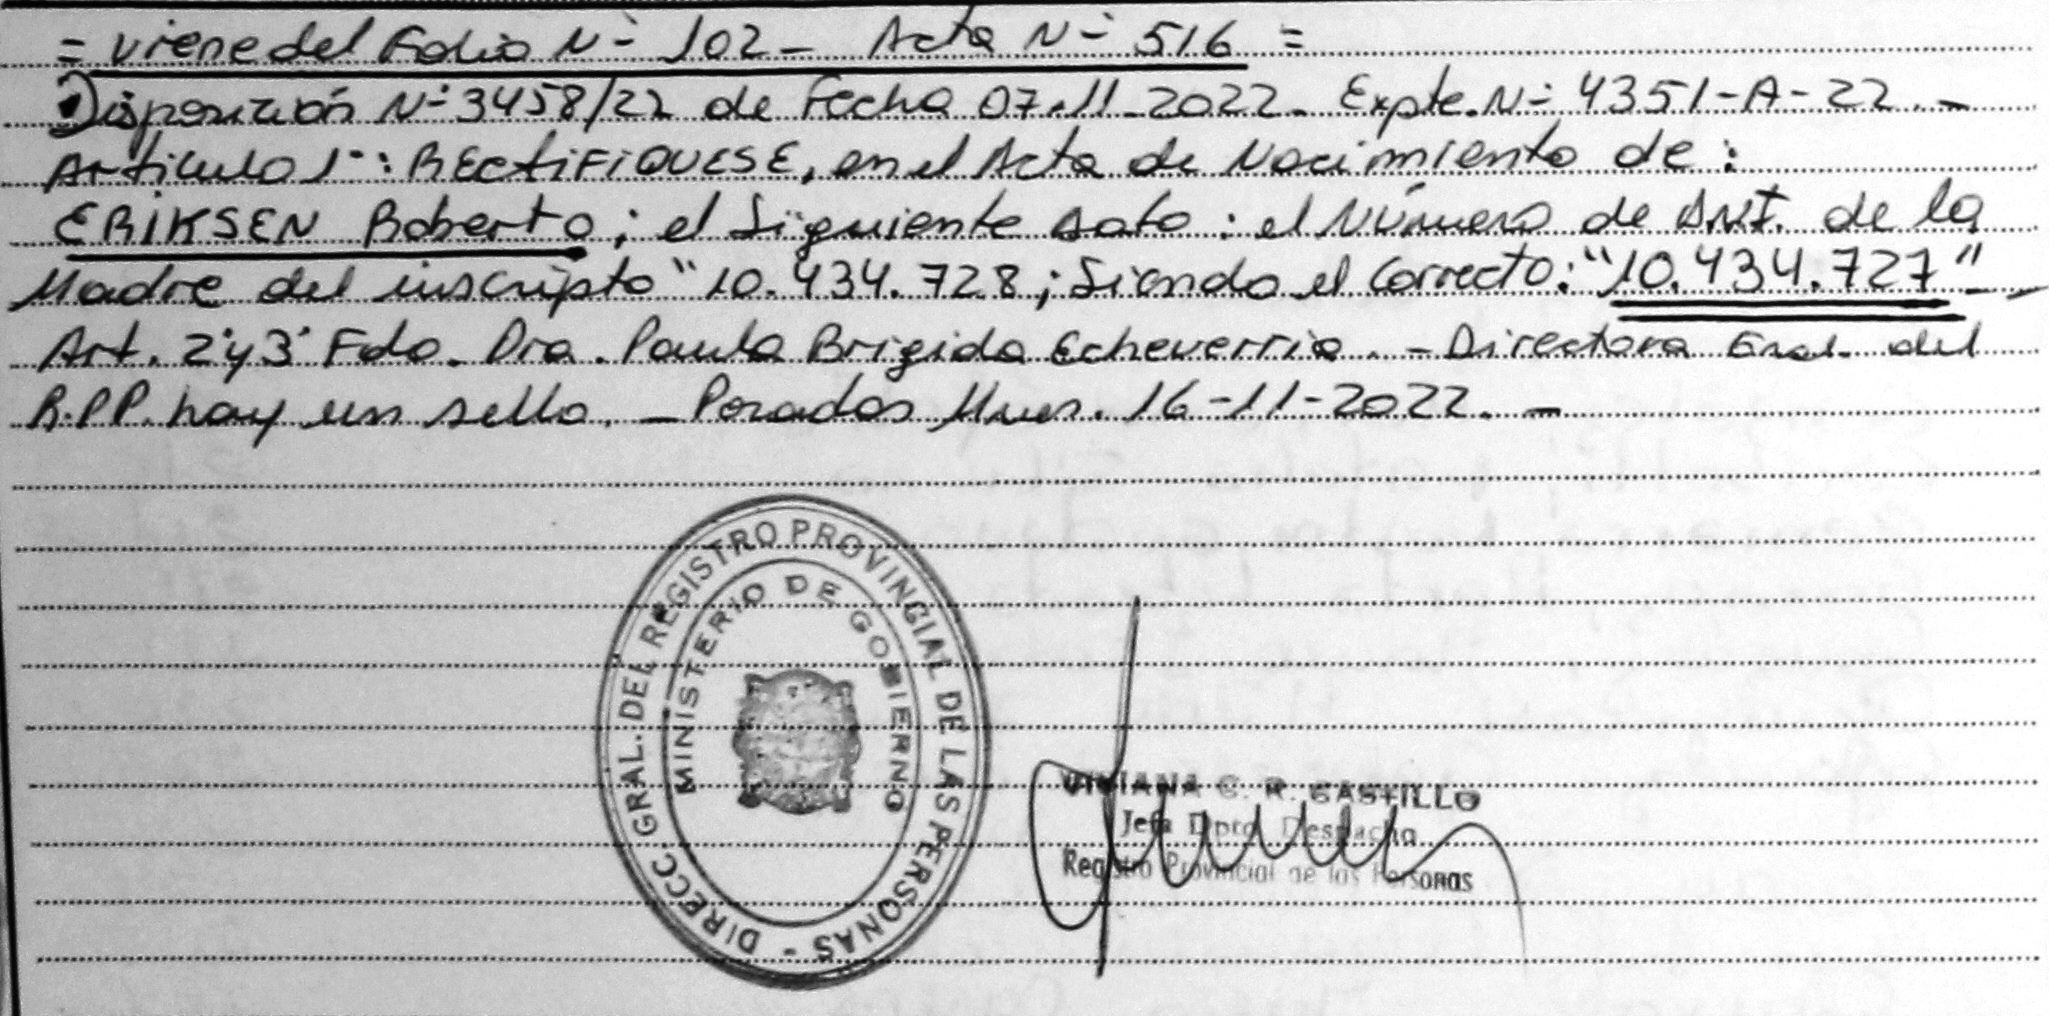 = Viene del Folio N- 102 - Acta N- 516 =
Disposición N- 3458/22 de Fecha 07.11.2022. Expte. N- 4351-A-22.-
Articulo 1°: RECtiFiQUESE, en el Acta de Nacimiento de:
ERIKSEN Roberto; el Siguiente dato: el Número de D.N.I. de la
Madre del inscripto "10.434.728; Siendo el Correcto: "10.434.727" -
Art. 2° y 3° Fdo. Dra. Paula Brigida Echeverria. - Directora Gral. del
R.P.P. hay un sello. - Posadas Mnes. 16-11-2022. -
DIRECC. GRAL. DEL REGISTRO PROVINCIAL DE LAS PERSONAS -
MINISTERIO DE GOBIERNO
VIVIANA C. R. CASTILLO
Jefa Dpto. Despacho
Registro Provincial de las Personas